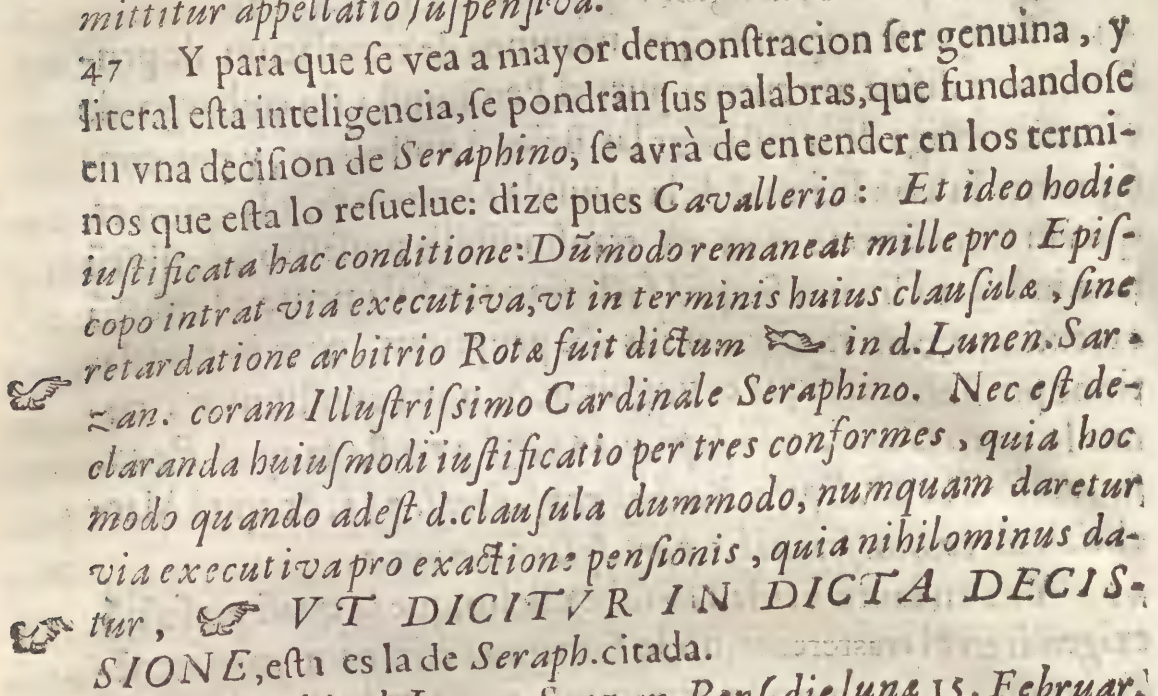 mittitur appellatio suſpenſiva.
47 Y para que ſe vea a mayor demonſtracion ſer genuina, y
literal eſta inteligencia, ſe pondràn ſus palabras, que fundandoſe
en vna deciſion de Seraphino, ſe avrà de entender en los termi-
nos que eſta lo reſuelue: dize pues Cavallerio: Et ideo hodie
iuſtificata hac conditione: Dũmodo remaneat mille pro Epiſ-
copo intrat via executiva, vt in terminis huius clauſulæ, ſine
retardatione arbitrio Rotæ fuit dictum ☞ in d. Lunen. Sar-
☞ zan. coram Illuſtriſsimo Cardinale Seraphino. Nec eſt de-
claranda huiuſmodi iuſtificatio per tres conformes, quia hoc
modo quando adeſt d. clauſula dummodo, numquam daretur
via executiva pro exactione penſionis, quia nihilominus da-
☞ tur, ☞ VT DICITVR IN DICTA DECIS-
SIONE, eſta es la de Seraph. citada.
Penſ. die lunæ 15. Februar.